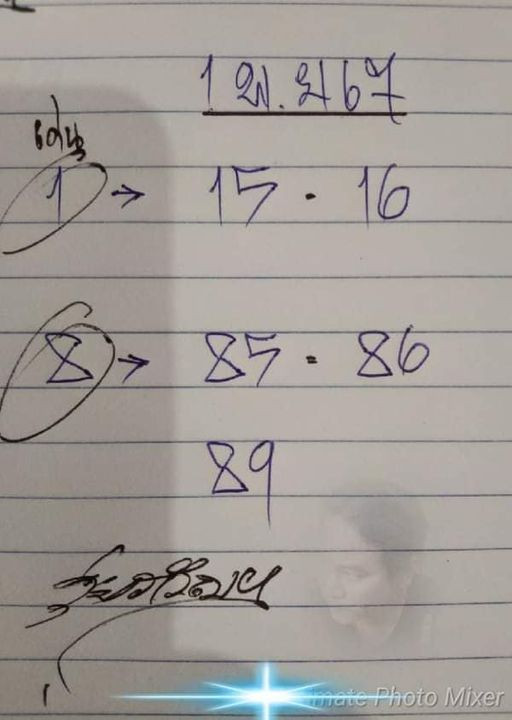 1 พ.ย 67
เด่น
1 → 15 - 16
8 → 85 = 86
89
mate Photo Mixer